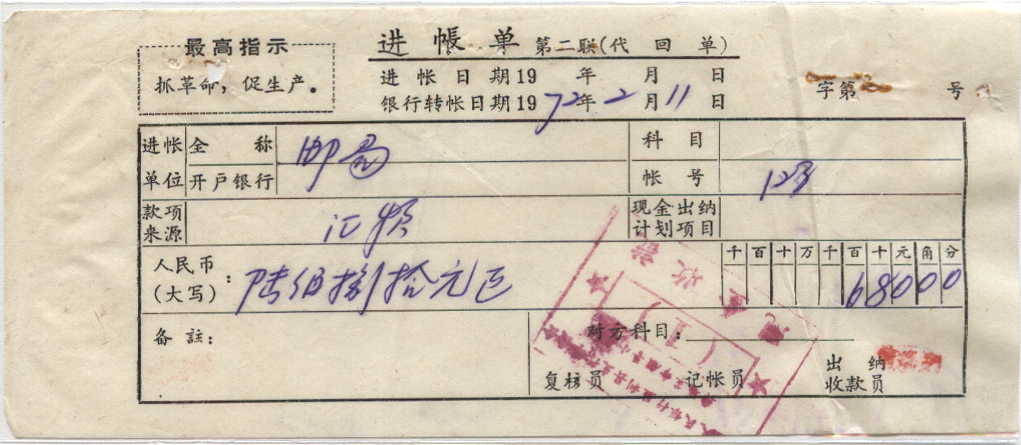 最高指示
抓革命，促生产。
进帐单 第二联(代回单)
进帐日期19 年 月 日
银行转帐日期1972年2月11日
字第 号
进帐单位 全称 邮局
开户银行
科目
帐号 123
款项来源 汇兑
现金出纳计划项目
人民币(大写)： 陆佰捌拾元正
千百十万千百十元角分
68000
备註：
对方科目：
复核员 记帐员 出纳收款员